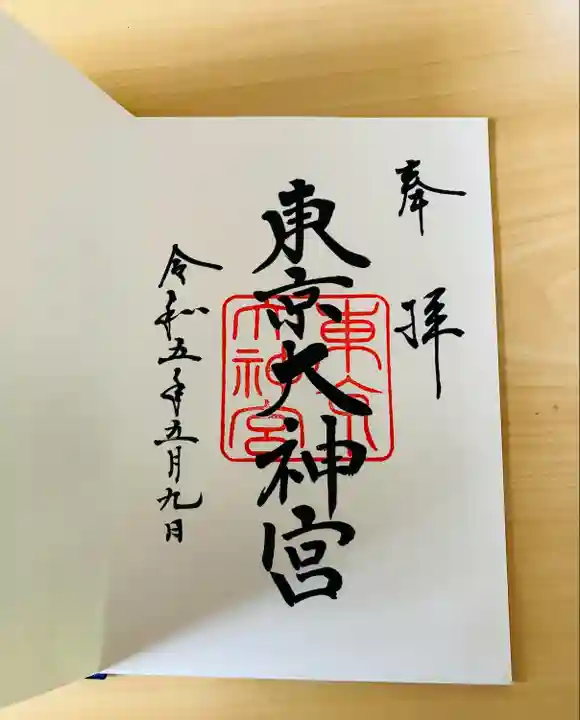 奉拝
東京大神宮
東京大神宮
令和五年五月九日